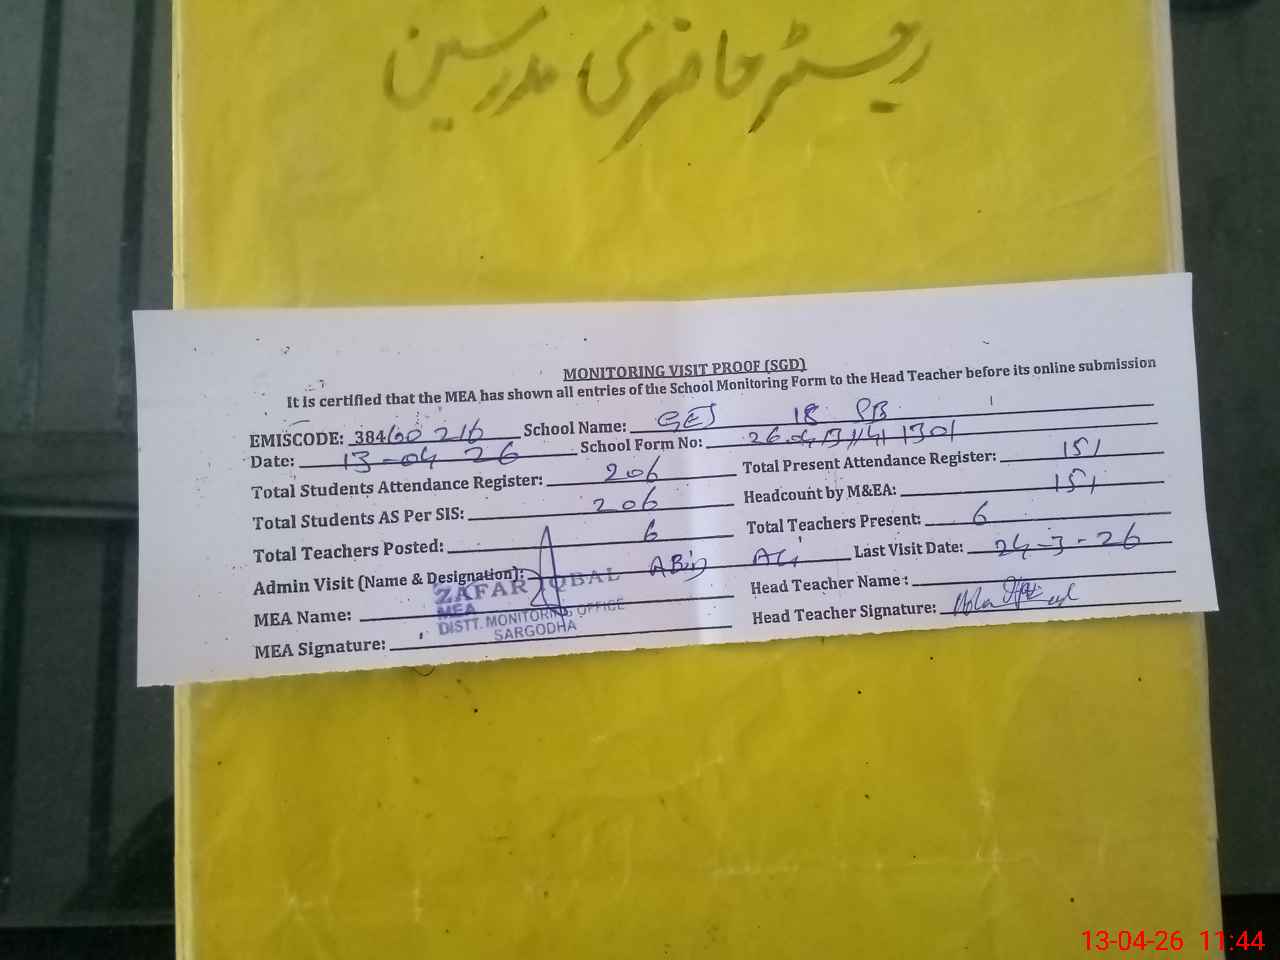 رجسٹر حاضری مدرسین
MONITORING VISIT PROOF (SGD)
It is certified that the MEA has shown all entries of the School Monitoring Form to the Head Teacher before its online submission
EMISCODE: 38460216 School Name: GES 18 PB
Date: 13-04 26 School Form No:
Total Students Attendance Register: 206 Total Present Attendance Register: 151
Total Students AS Per SIS: 206 Headcount by M&EA: 151
Total Teachers Posted: 6 Total Teachers Present: 6
Admin Visit (Name & Designation): ABid Ali Last Visit Date: 24-3-26
MEA Name: Head Teacher Name :
ZAFAR IQBAL
MEA
DISTT. MONITORING OFFICE
SARGODHA
MEA Signature: Head Teacher Signature:
13-04-26 11:44